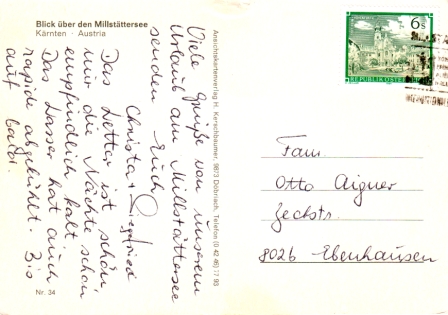 Blick über den Millstättersee
Kärnten · Austria
Viele Grüße von unserem
Urlaub am Millstättersee
senden Euch
Christa + Siegfried
Das Wetter ist schön
nur die Nächte schon
empfindlich kalt.
Das Wasser hat auch
rapide abgekühlt. Bis
auf bald.
Nr. 34
Ansichtskartenverlag H. Kerschbaumer, 9873 Döbriach, Telefon (0 42 46) 77 93
6 S
REPUBLIK ÖSTERREICH
Fam.
Otto Aigner
Zechstr.
8026 Ebenhausen